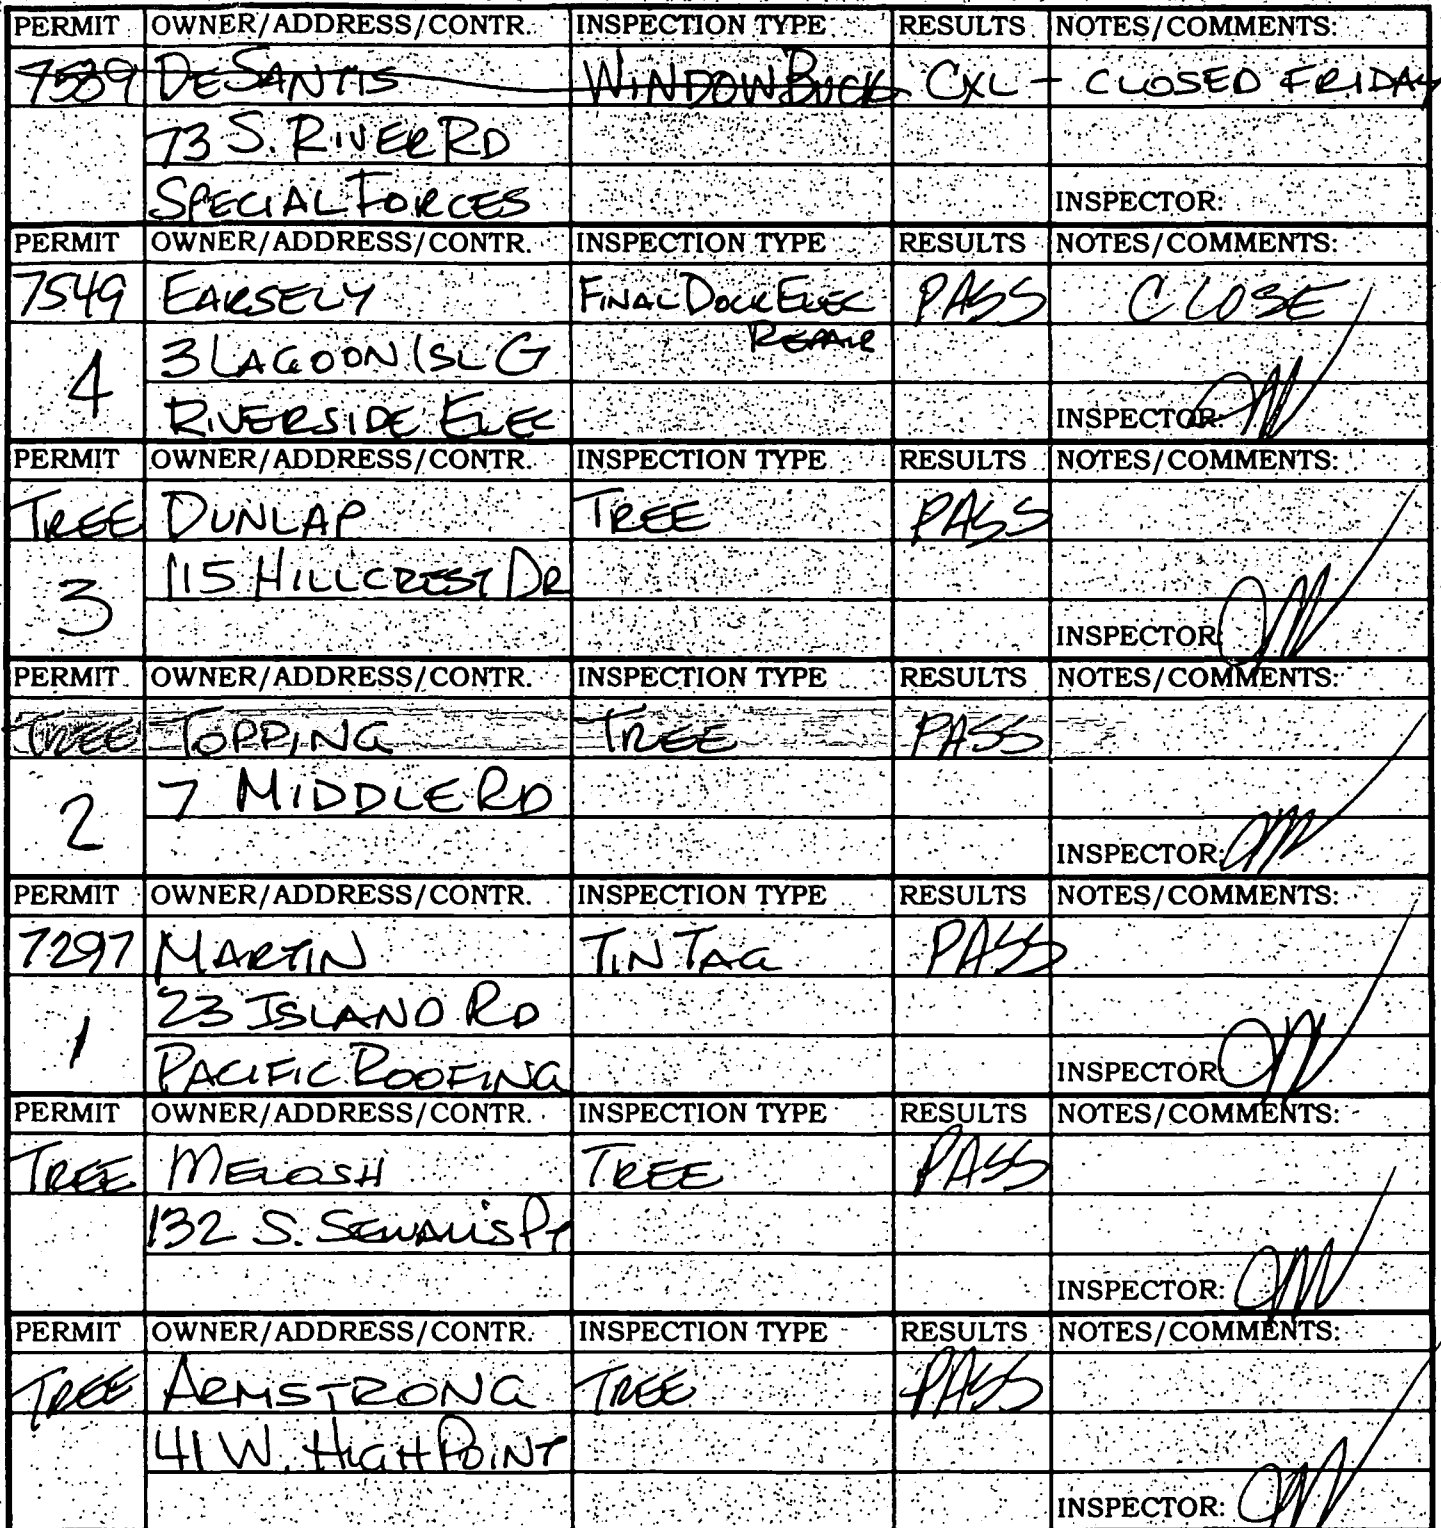 PERMIT OWNER/ADDRESS/CONTR. INSPECTION TYPE RESULTS NOTES/COMMENTS:
7589 DESANTIS WINDOW BUCK CXL - CLOSED FRIDAY
73 S. RIVER RD
SPECIAL FORCES INSPECTOR:
PERMIT OWNER/ADDRESS/CONTR. INSPECTION TYPE RESULTS NOTES/COMMENTS:
7549 EARSELY FINAL DOCK ELEC PASS CLOSE
REPAIR
4 3 LAGOON ISL G
RIVERSIDE ELEC INSPECTOR:
PERMIT OWNER/ADDRESS/CONTR. INSPECTION TYPE RESULTS NOTES/COMMENTS:
TREE DUNLAP TREE PASS
3 115 HILLCREST DR
INSPECTOR:
PERMIT OWNER/ADDRESS/CONTR. INSPECTION TYPE RESULTS NOTES/COMMENTS:
TREE TOPPING TREE PASS
2 7 MIDDLE RD
INSPECTOR:
PERMIT OWNER/ADDRESS/CONTR. INSPECTION TYPE RESULTS NOTES/COMMENTS:
7297 MARTIN TIN TAG PASS
1 23 ISLAND RD
PACIFIC ROOFING INSPECTOR:
PERMIT OWNER/ADDRESS/CONTR. INSPECTION TYPE RESULTS NOTES/COMMENTS:
TREE MELOSH TREE PASS
132 S. SEWALL'S PT
INSPECTOR:
PERMIT OWNER/ADDRESS/CONTR. INSPECTION TYPE RESULTS NOTES/COMMENTS:
TREE ARMSTRONG TREE PASS
41 W. HIGH POINT
INSPECTOR: